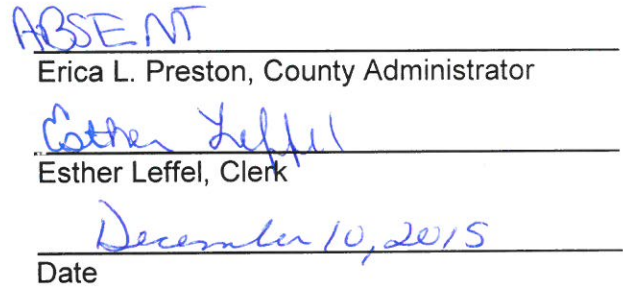 ABSENT
Erica L. Preston, County Administrator
Esther Leffel
Esther Leffel, Clerk
December 10, 2015
Date